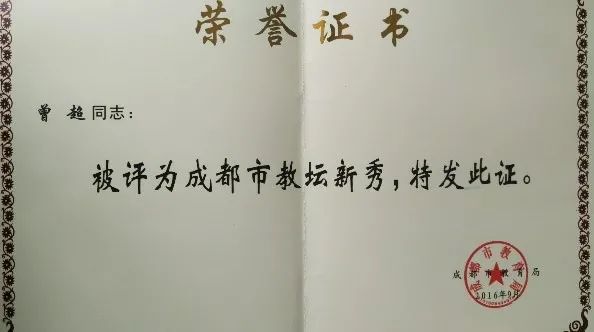 荣誉证书
曾 超 同志：
被评为成都市教坛新秀，特发此证。
成都市教育局
成都市教育局
2016年9月